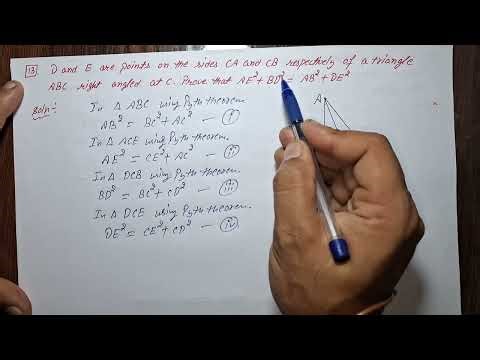 13 D and E are points on the sides CA and CB respectively of a triangle
ABC right angled at C. Prove that AE² + BD² = AB² + DE²
Soln:-
In Δ ABC using Pyth theorem.
AB² = BC² + AC² — (i)
In Δ ACE using Pyth theorem.
AE² = CE² + AC² — (ii)
In Δ DCB using Pyth theorem.
BD² = BC² + CD² — (iii)
In Δ DCE using Pyth theorem.
DE² = CE² + CD² — (iv)
A